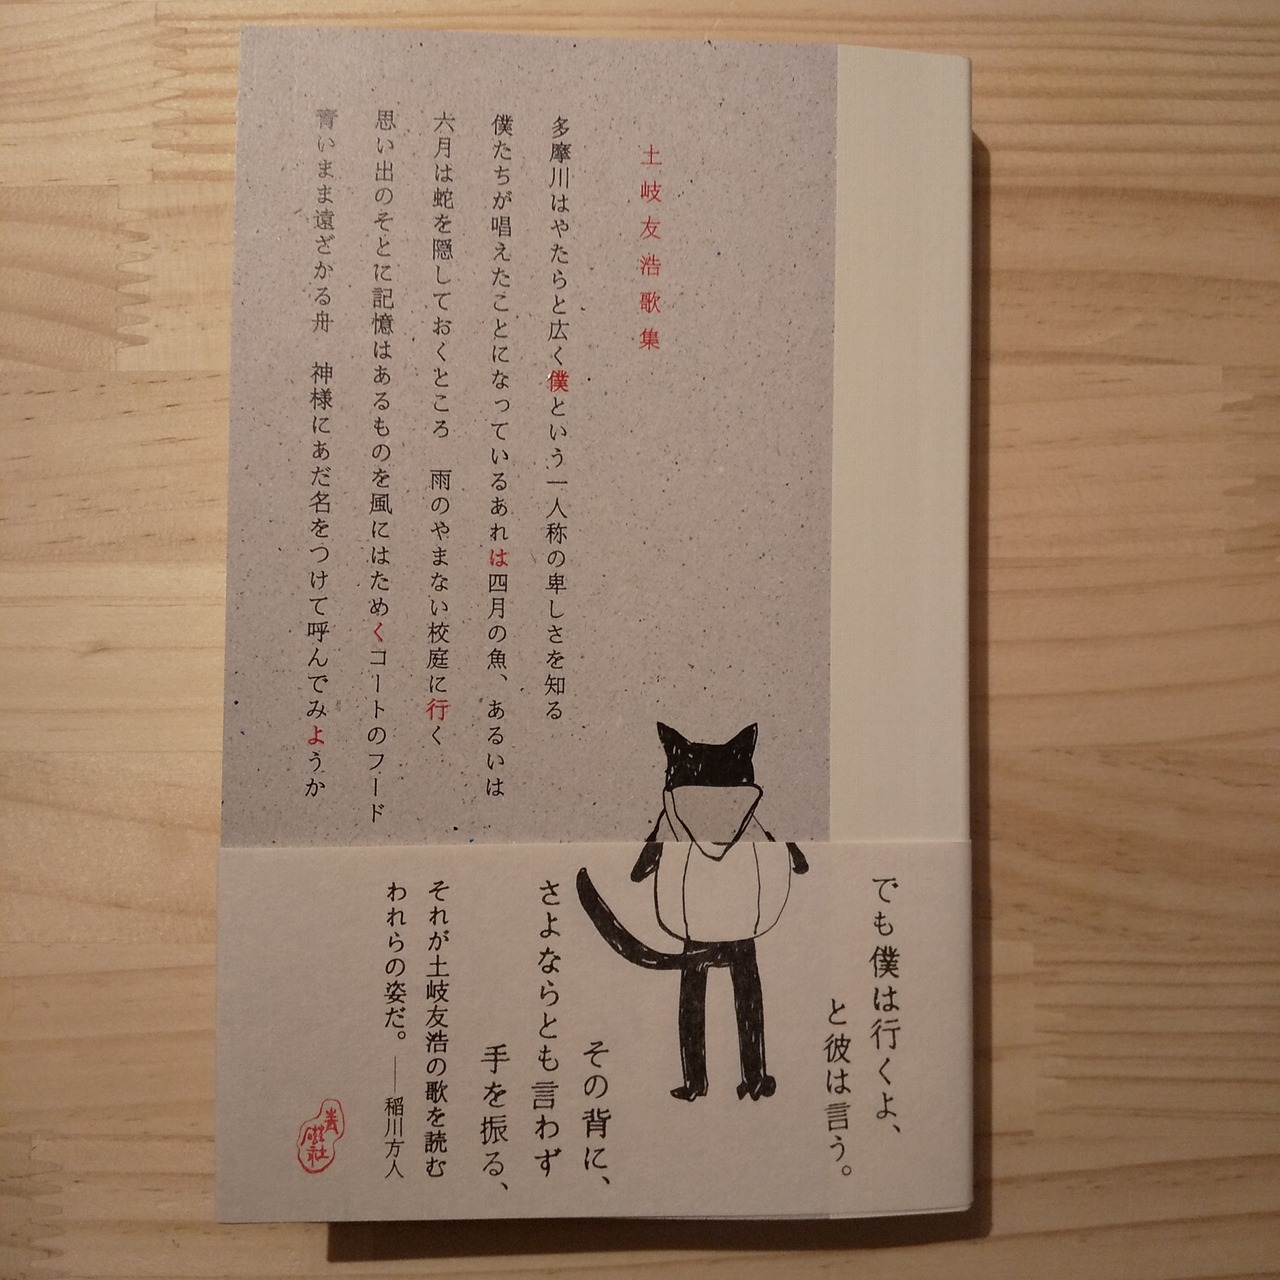 土岐友浩歌集
多摩川はやたらと広く僕という一人称の卑しさを知る
僕たちが唱えたことになっているあれは四月の魚、あるいは
六月は蛇を隠しておくところ　雨のやまない校庭に行く
思い出のそとに記憶はあるものを風にはためくコートのフード
青いまま遠ざかる舟　神様にあだ名をつけて呼んでみようか
でも僕は行くよ、
と彼は言う。
その背に、
さよならとも言わず
手を振る、
それが土岐友浩の歌を読む
われらの姿だ。――稲川方人
青磁社